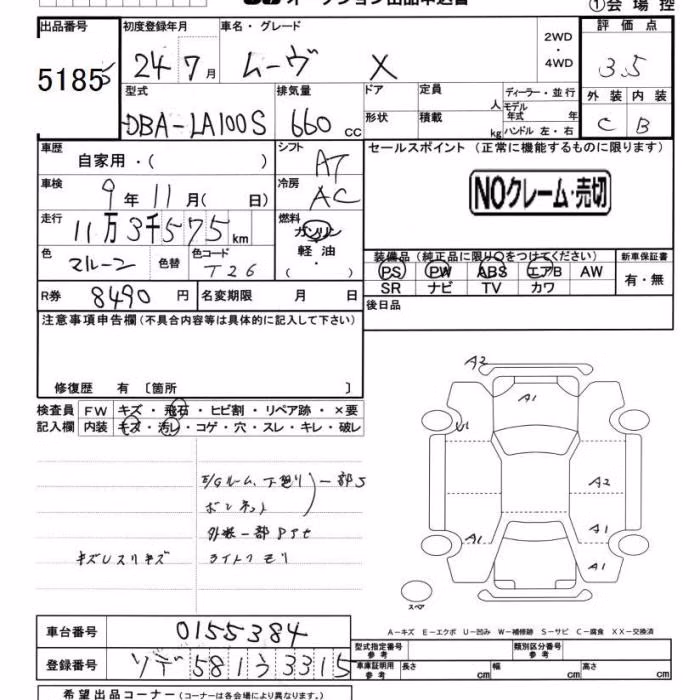 オークション出品申込書 ①会場控
出品番号 初度登録年月 車名・グレード 2WD・4WD 評価点
5185 24 7月 ムーヴ X 3.5
型式 排気量 ドア 定員 人 ディーラー・並行 外装 内装
DBA-LA100S 660 cc 形状 積載 kg モデル年式 年 ハンドル 左・右 C B
車歴 自家用・( ) シフト AT セールスポイント (正常に機能するものに限ります)
車検 9年11月( 日) 冷房 AC NOクレーム・売切
走行 11万3千575km 燃料 ガソリン
色 マルーン 色替 色コード T26 軽油・( )
装備品 (純正品に限り○をつけてください) 新車保証書
PS PW ABS エアB AW 有・無
SR ナビ TV カワ
R券 8490円 名変期限 月 日 後日品
注意事項申告欄(不具合内容等は具体的に記入して下さい)
修復歴 有 〔箇所 〕
検査員 FW キズ・飛石・ヒビ割・リペア跡・×要
記入欄 内装 キズ・汚レ・コゲ・穴・スレ・キレ・破レ
E/Gルーム、下廻り 一部S
ボンネット
外装一部
キズUスリキズ ライトクモリ
A2
A1
U1
A2
A1
A1
A1
スペア
A-キズ E-エクボ U-凹み W-補修跡 S-サビ C-腐食 XX-交換済
車台番号 0155384
型式指定番号 参考 類別区分番号 参考
登録番号 ソデ581う3315
車庫証明用 参考 長さ cm 幅 cm 高さ cm
希望出品コーナー(コーナーは各会場により異なります。)